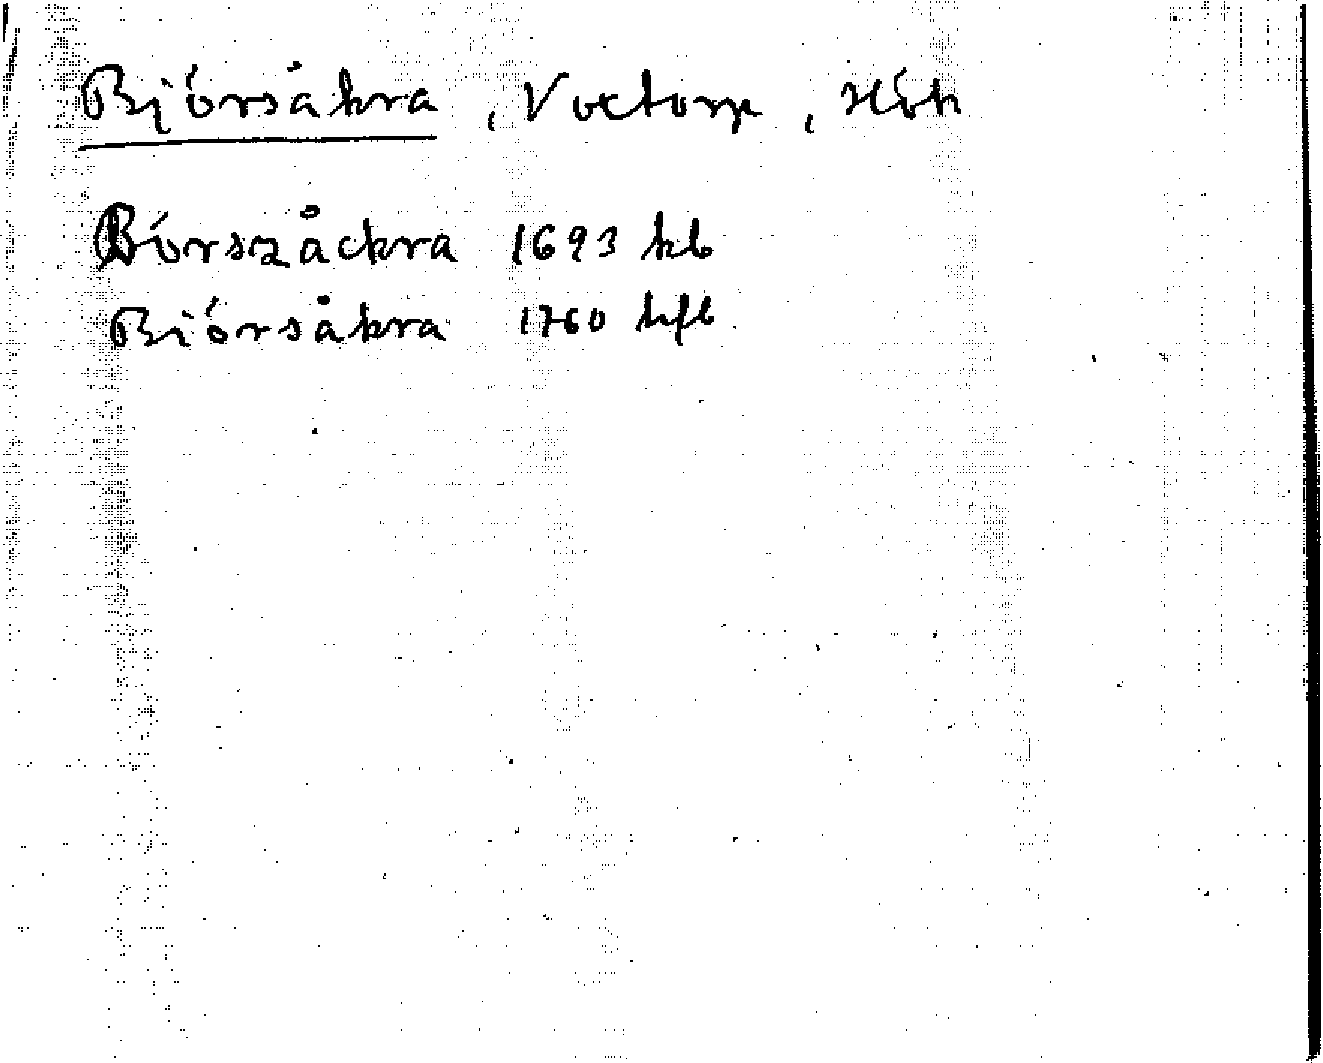 Björsåkra, Voxtorp,
Börszåckra 1693 kb
Biörsåkra 1760 hfl